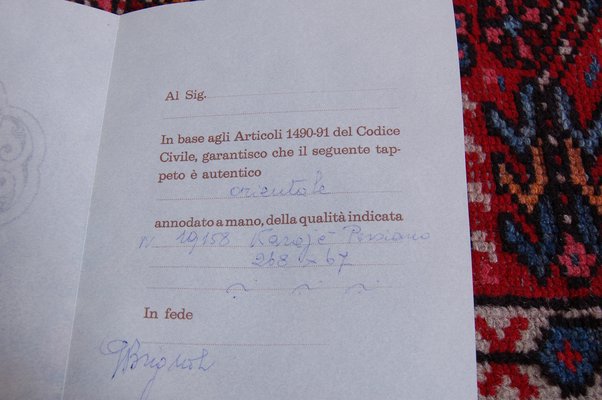 Al Sig.
In base agli Articoli 1490-91 del Codice
Civile, garantisco che il seguente tap-
peto è autentico
orientale
annodato a mano, della qualità indicata
N. 19158 Karajè Persiano
268 x 67
In fede